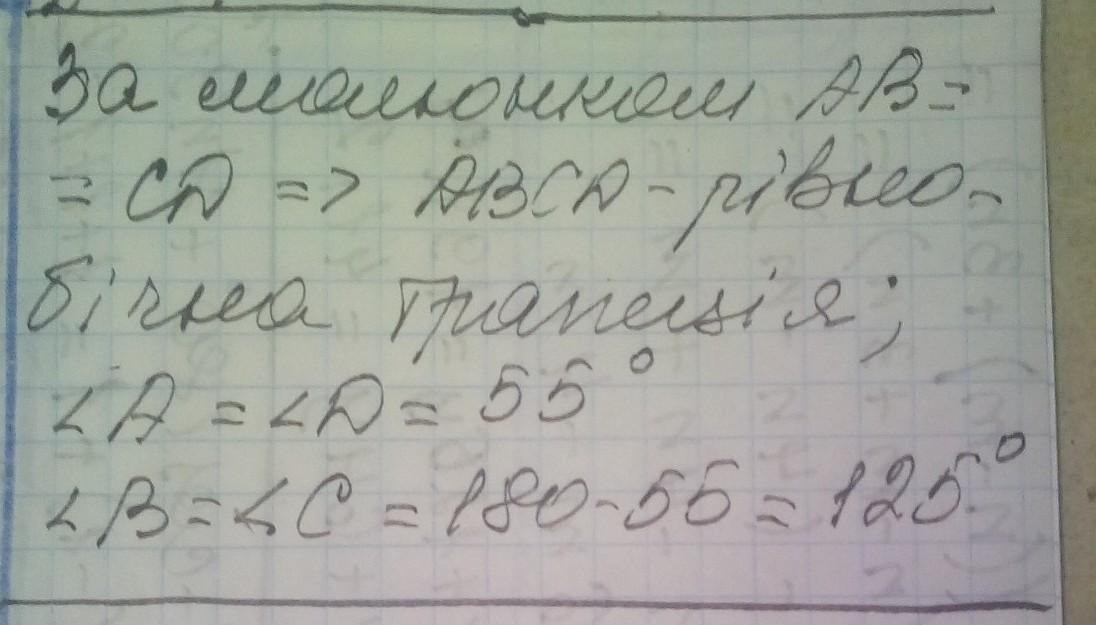 За малюнком AB=
= CD => ABCD - рівно-
бічна трапеція;
∠A = ∠D = 55°
∠B = ∠C = 180-55 = 125°